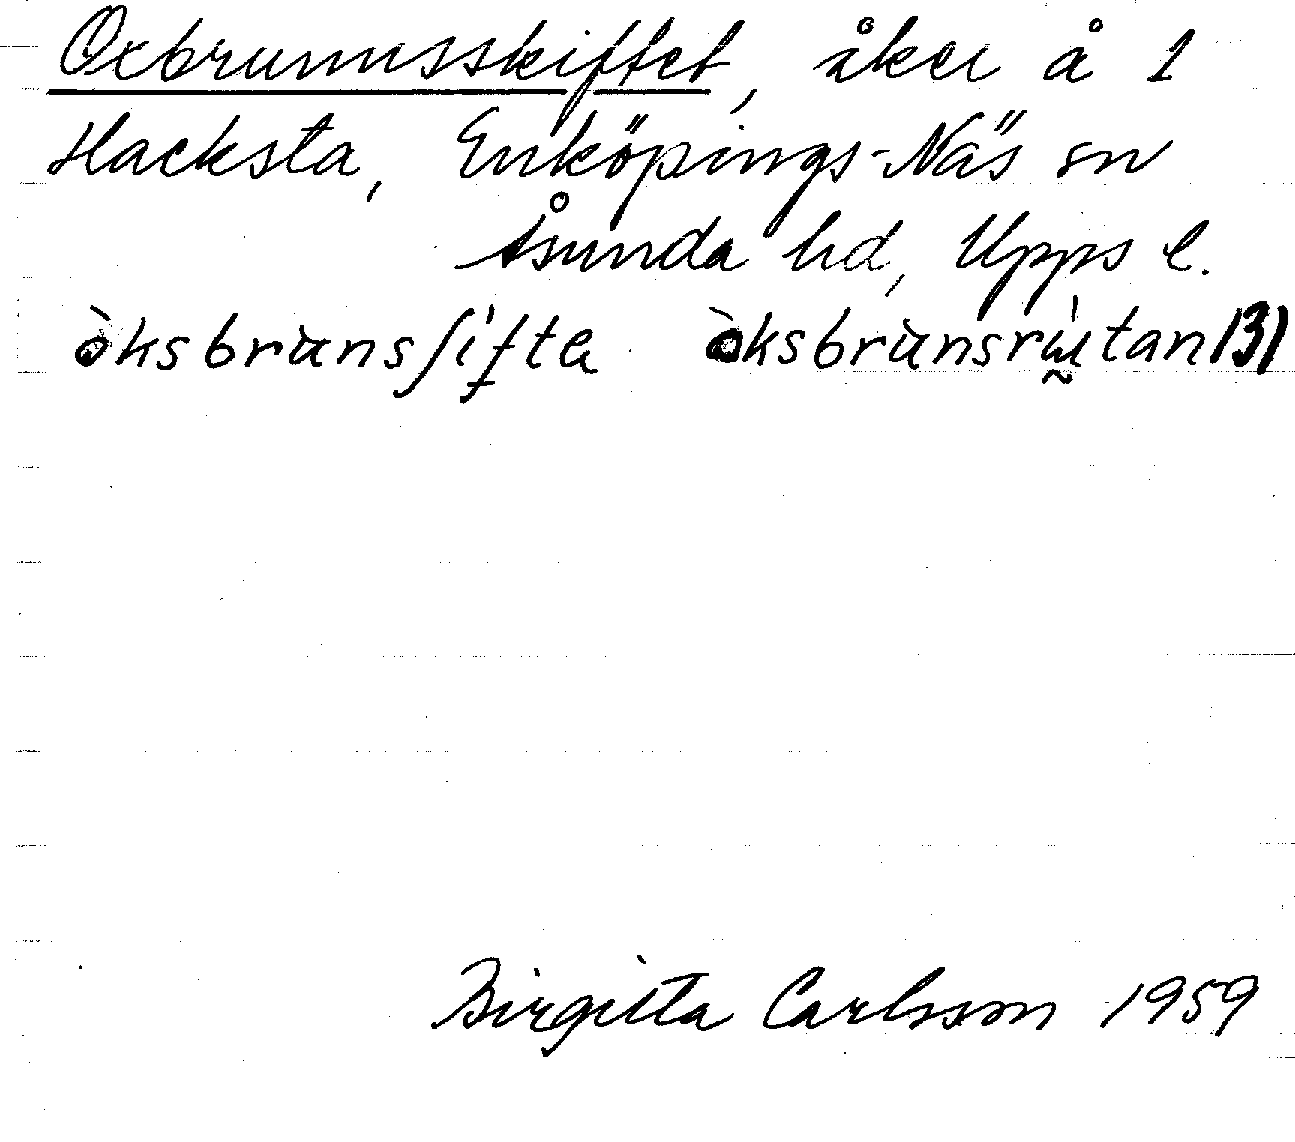 Oxbrunnsskiftet, åker å 1
Hacksta, Enköpings-Näs sn
Åsunda hd, Upps l.
òksbrùnsʃìfta òksbrùnsrɯ̀tan 131
Birgitta Carlsson 1959